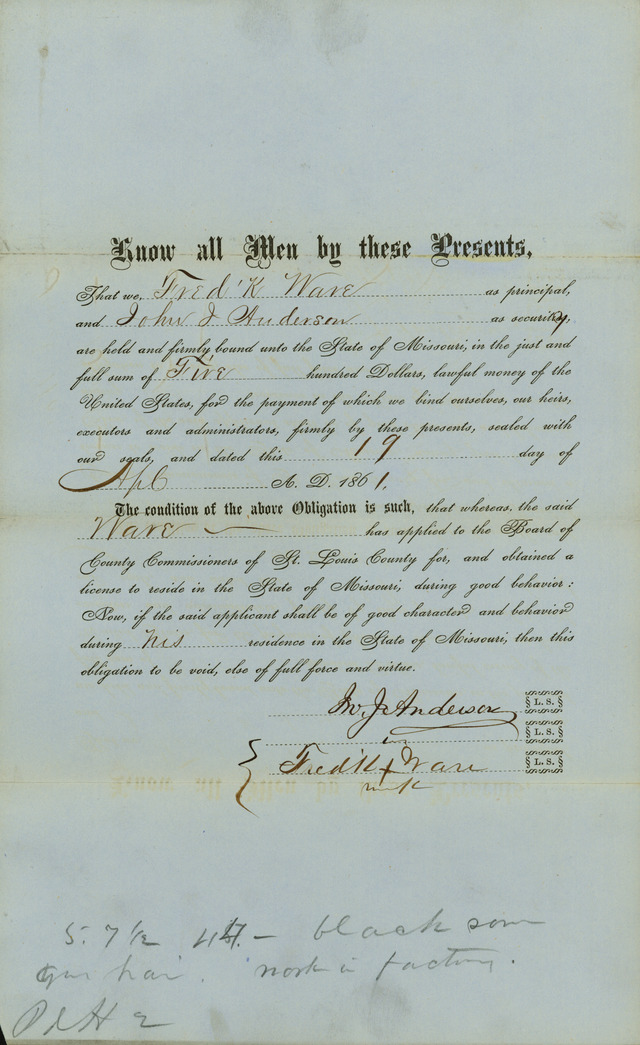 Know all Men by these Presents,
That we, Fred'K Ware as principal,
and John J Anderson as security,
are held and firmly bound unto the State of Missouri, in the just and
full sum of Five hundred Dollars, lawful money of the
United States, for the payment of which we bind ourselves, our heirs,
executors and administrators, firmly by these presents, sealed with
our seals, and dated this 19 day of
Apl A. D. 1861.
The condition of the above Obligation is such, that whereas, the said
Ware has applied to the Board of
County Commissioners of St. Louis County for, and obtained a
license to reside in the State of Missouri, during good behavior:
Now, if the said applicant shall be of good character and behavior
during his residence in the State of Missouri, then this
obligation to be void, else of full force and virtue.
Jno. J Anderson § L. S. §
§ L. S. §
Fred'K x Ware § L. S. §
mk
5. 7 1/2 44 - black som
hair. work in factory.
Pd H 2